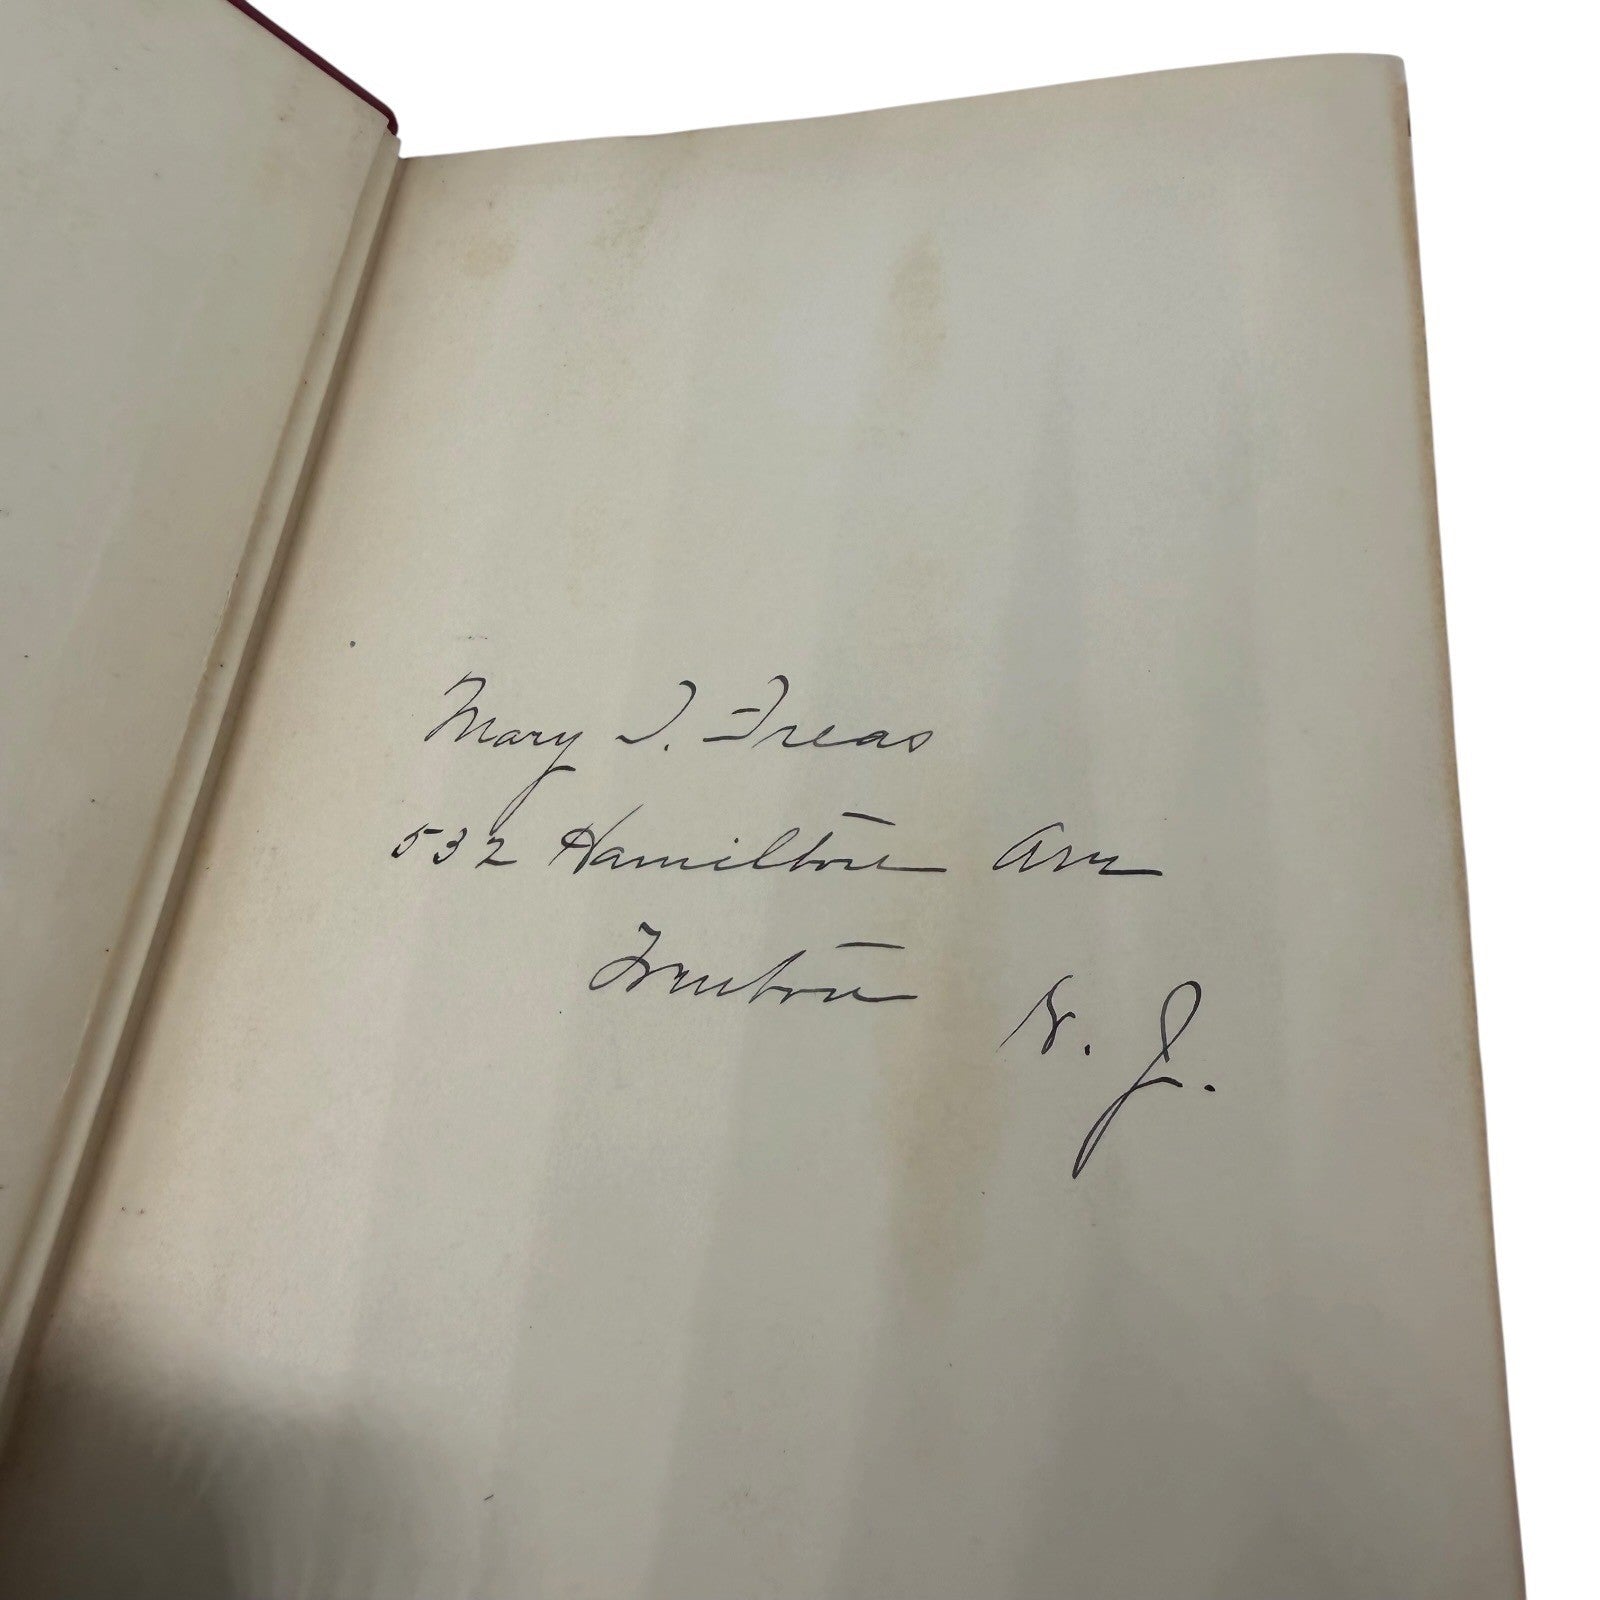 Mary I. Freas
532 Hamilton Ave
Trenton N. J.